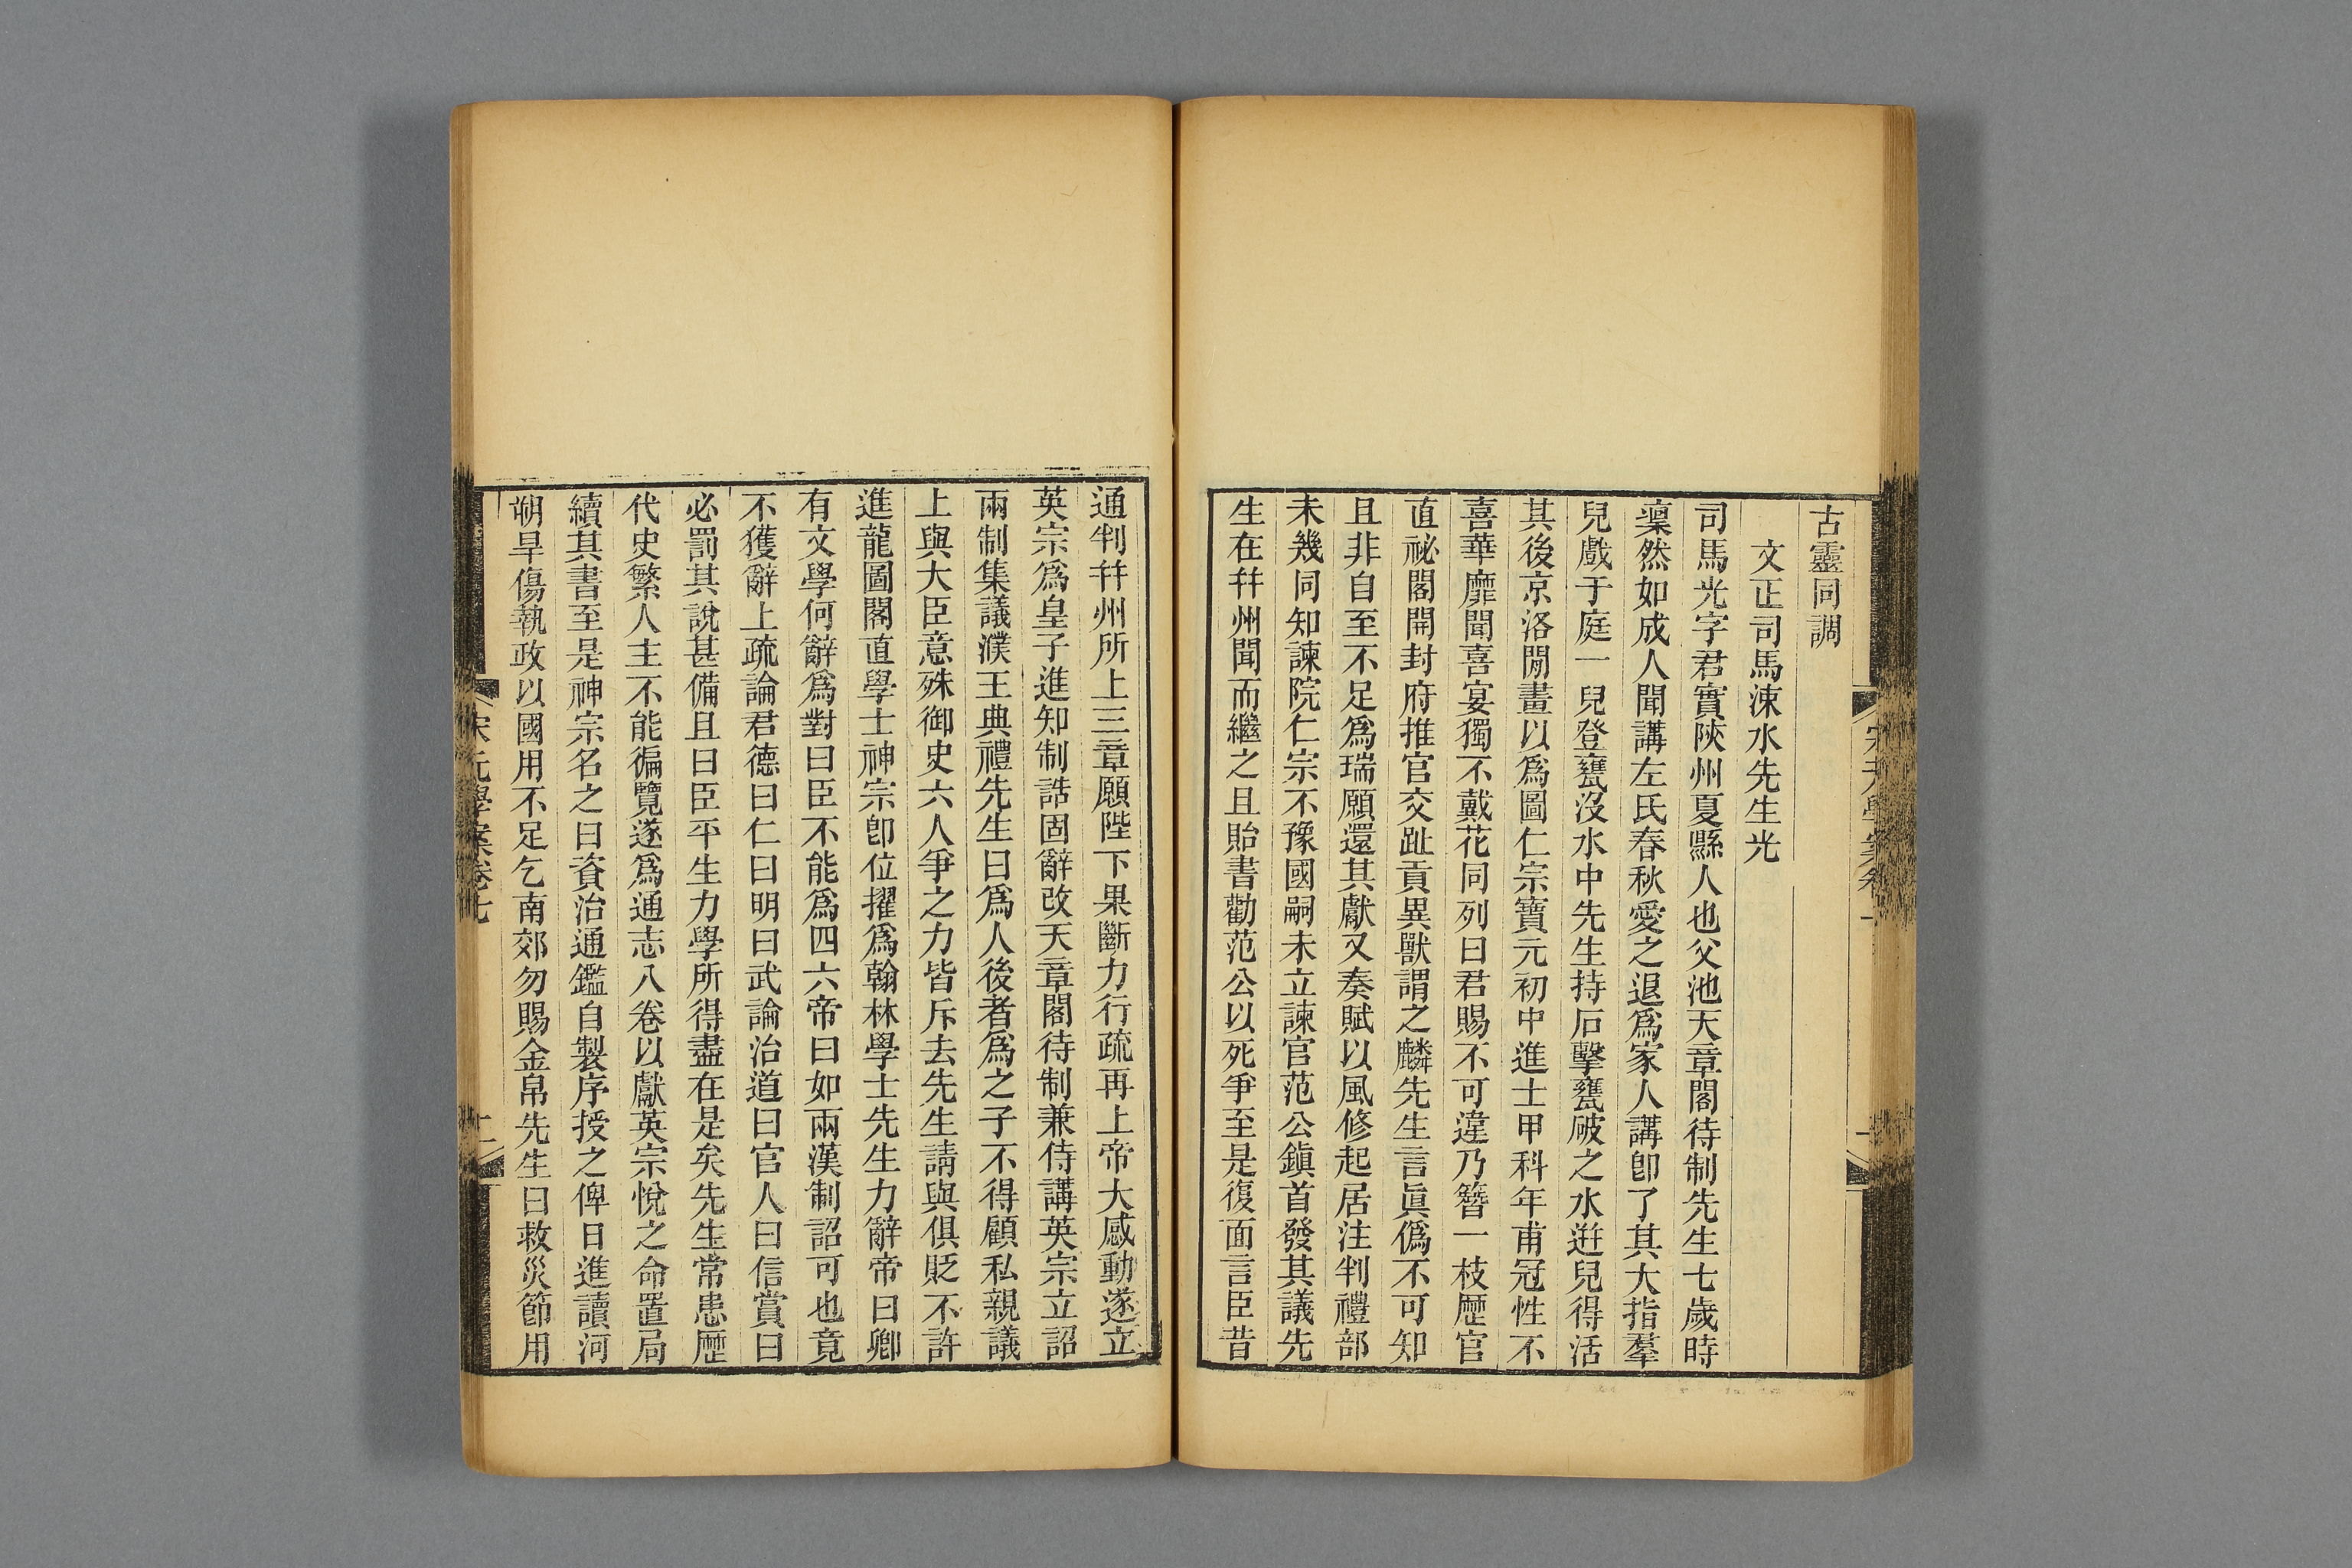 古靈同調
文正司馬涑水先生光
司馬光字君實陝州夏縣人也父池天章閣待制先生七歲時
凜然如成人聞講左氏春秋愛之退爲家人講卽了其大指羣
兒戲于庭一兒登甕沒水中先生持石擊甕破之水迸兒得活
其後京洛閒畫以爲圖仁宗寶元初中進士甲科年甫冠性不
喜華靡聞喜宴獨不戴花同列曰君賜不可違乃簪一枝歷官
直祕閣開封府推官交趾貢異獸謂之麟先生言眞僞不可知
且非自至不足爲瑞願還其獻又奏賦以風修起居注判禮部
未幾同知諫院仁宗不豫國嗣未立諫官范公鎭首發其議先
生在幷州聞而繼之且貽書勸范公以死爭至是復面言臣昔
通判幷州所上三章願陛下果斷力行疏再上帝大感動遂立
英宗爲皇子進知制誥固辭改天章閣待制兼侍講英宗立詔
兩制集議濮王典禮先生曰爲人後者爲之子不得顧私親議
上與大臣意殊御史六人爭之力皆斥去先生請與俱貶不許
進龍圖閣直學士神宗卽位擢爲翰林學士先生力辭帝曰卿
有文學何辭爲對曰臣不能爲四六帝曰如兩漢制詔可也竟
不獲辭上疏論君德曰仁曰明曰武論治道曰官人曰信賞曰
必罰其說甚備且曰臣平生力學所得盡在是矣先生常患歷
代史繁人主不能徧覽遂爲通志八卷以獻英宗悅之命置局
續其書至是神宗名之曰資治通鑑自製序授之俾日進讀河
朔旱傷執政以國用不足乞南郊勿賜金帛先生曰救災節用
宋元學案卷七